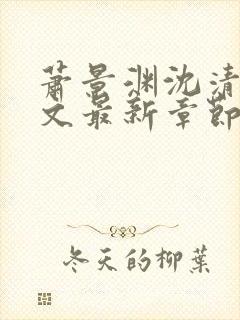 萧景渊沈清
文最新章節
冬天的柳葉